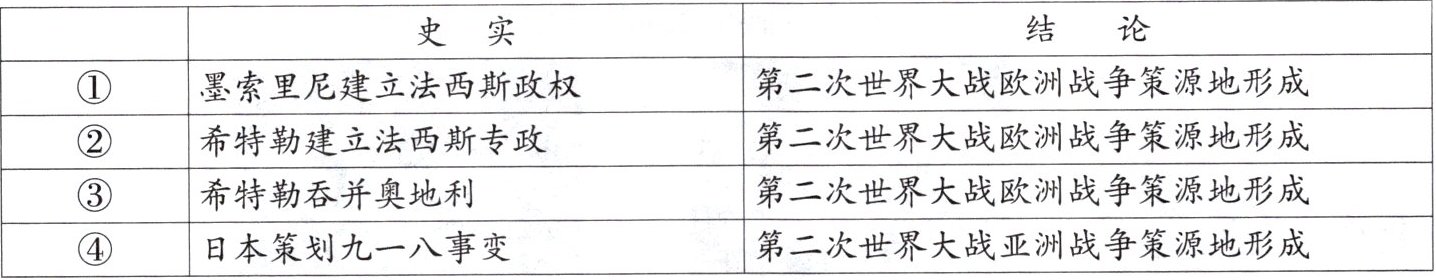 史 实 结 论
① 墨索里尼建立法西斯政权 第二次世界大战欧洲战争策源地形成
② 希特勒建立法西斯专政 第二次世界大战欧洲战争策源地形成
③ 希特勒吞并奥地利 第二次世界大战欧洲战争策源地形成
④ 日本策划九一八事变 第二次世界大战亚洲战争策源地形成